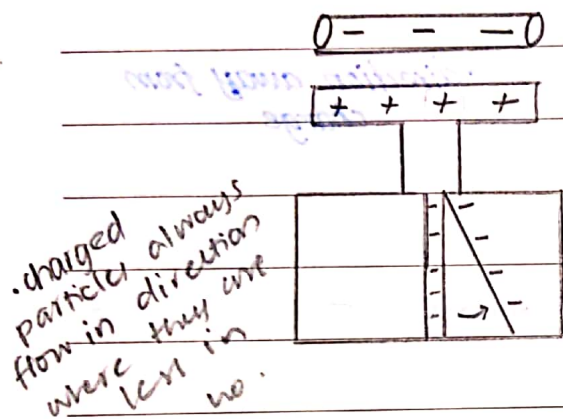 - - -
+ + + +
.charged
particles always
flow in direction
where they are
less in
no.
- - - - -
- - - -